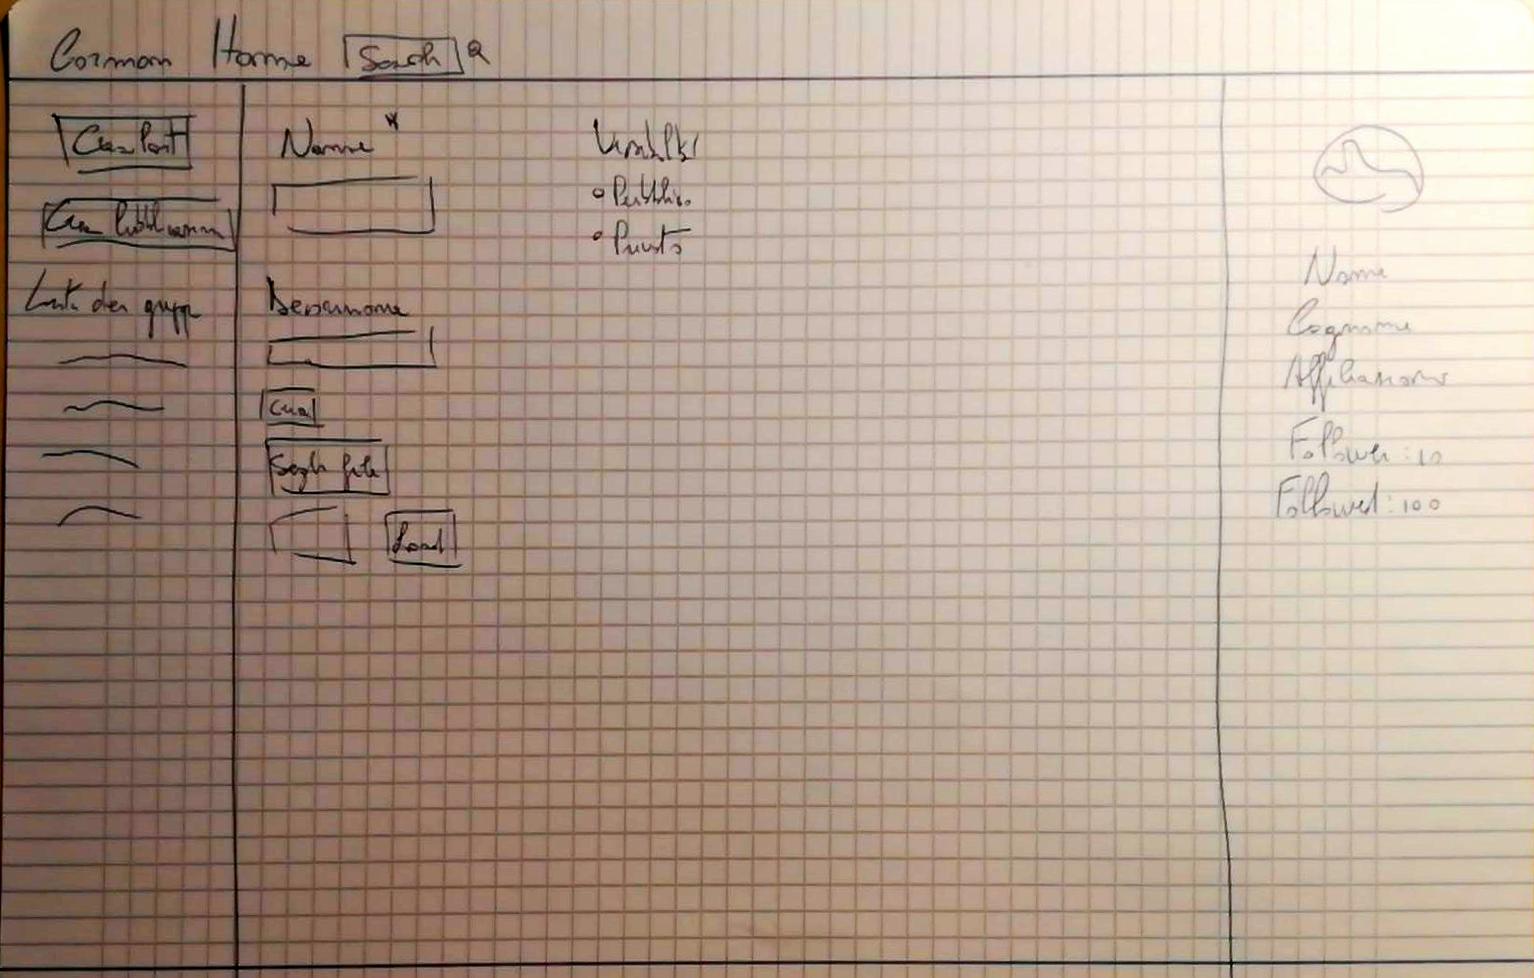 Corman Home Search
Crea Post
Crea Pubblicazione
Lista dei gruppi
Nome *
Descrizione
Crea
Scegli file
Load
Visibilità
Pubblico
Privato
Nome
Cognome
Affiliazione
Follower: 10
Followed: 100